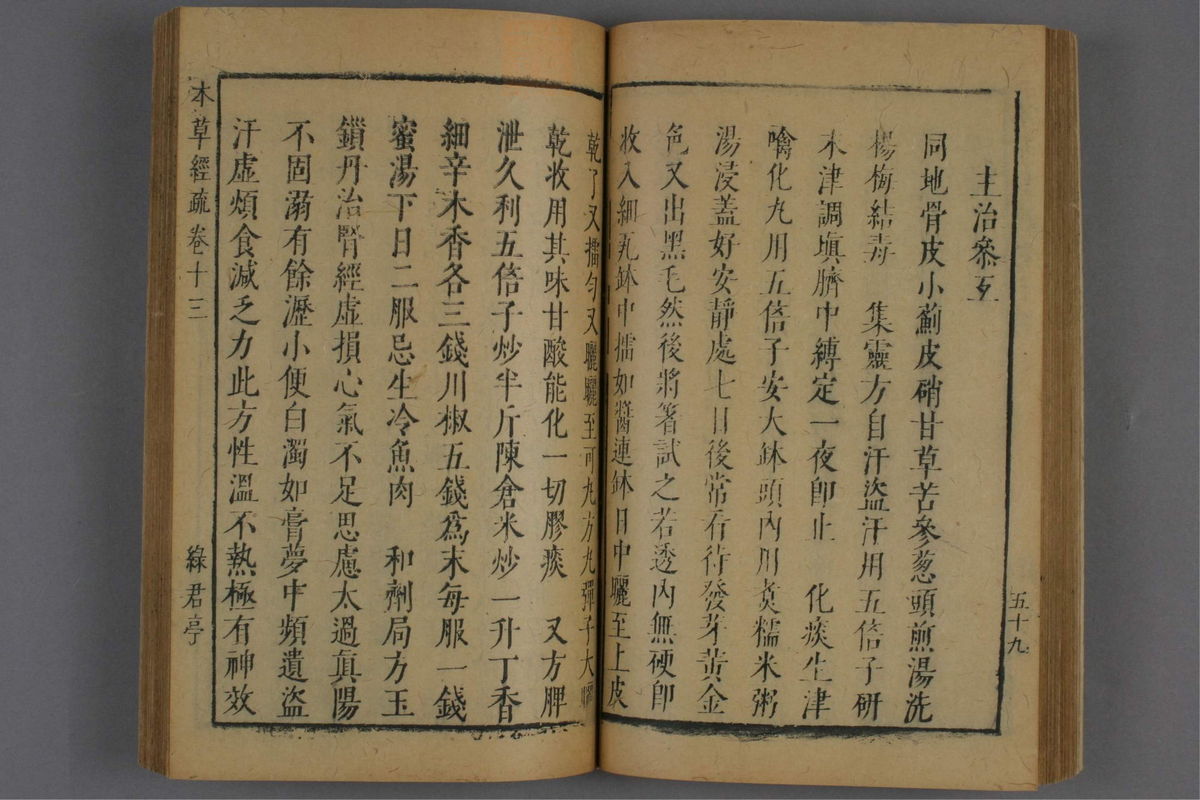 五十九
主治參互
同地骨皮小薊皮硝甘草苦參葱頭煎湯洗
楊梅結毒　集靈方自汗盜汗用五倍子研
末津調塡臍中縛定一夜卽止　化痰生津
噙化丸用五倍子安大鉢頭內用煑糯米粥
湯浸蓋好安靜處七日後常看待發芽黄金
色又出黑毛然後將箸試之若透內無硬卽
收入細乳鉢中擂如醬連鉢日中曬至上皮
乾了又擂匀又曬曬至可丸方丸彈子大曬
乾收用其味甘酸能化一切膠痰　又方脾
泄久利五倍子炒半斤陳倉米炒一升丁香
細辛木香各三錢川椒五錢爲末每服一錢
蜜湯下日二服忌生冷魚肉　和劑局方玉
鎖丹治腎經虛損心氣不足思慮太過眞陽
不固溺有餘瀝小便白濁如膏夢中頻遺盜
汗虛煩食減乏力此方性溫不熱極有神效
本草經疏　卷十三　綠君亭